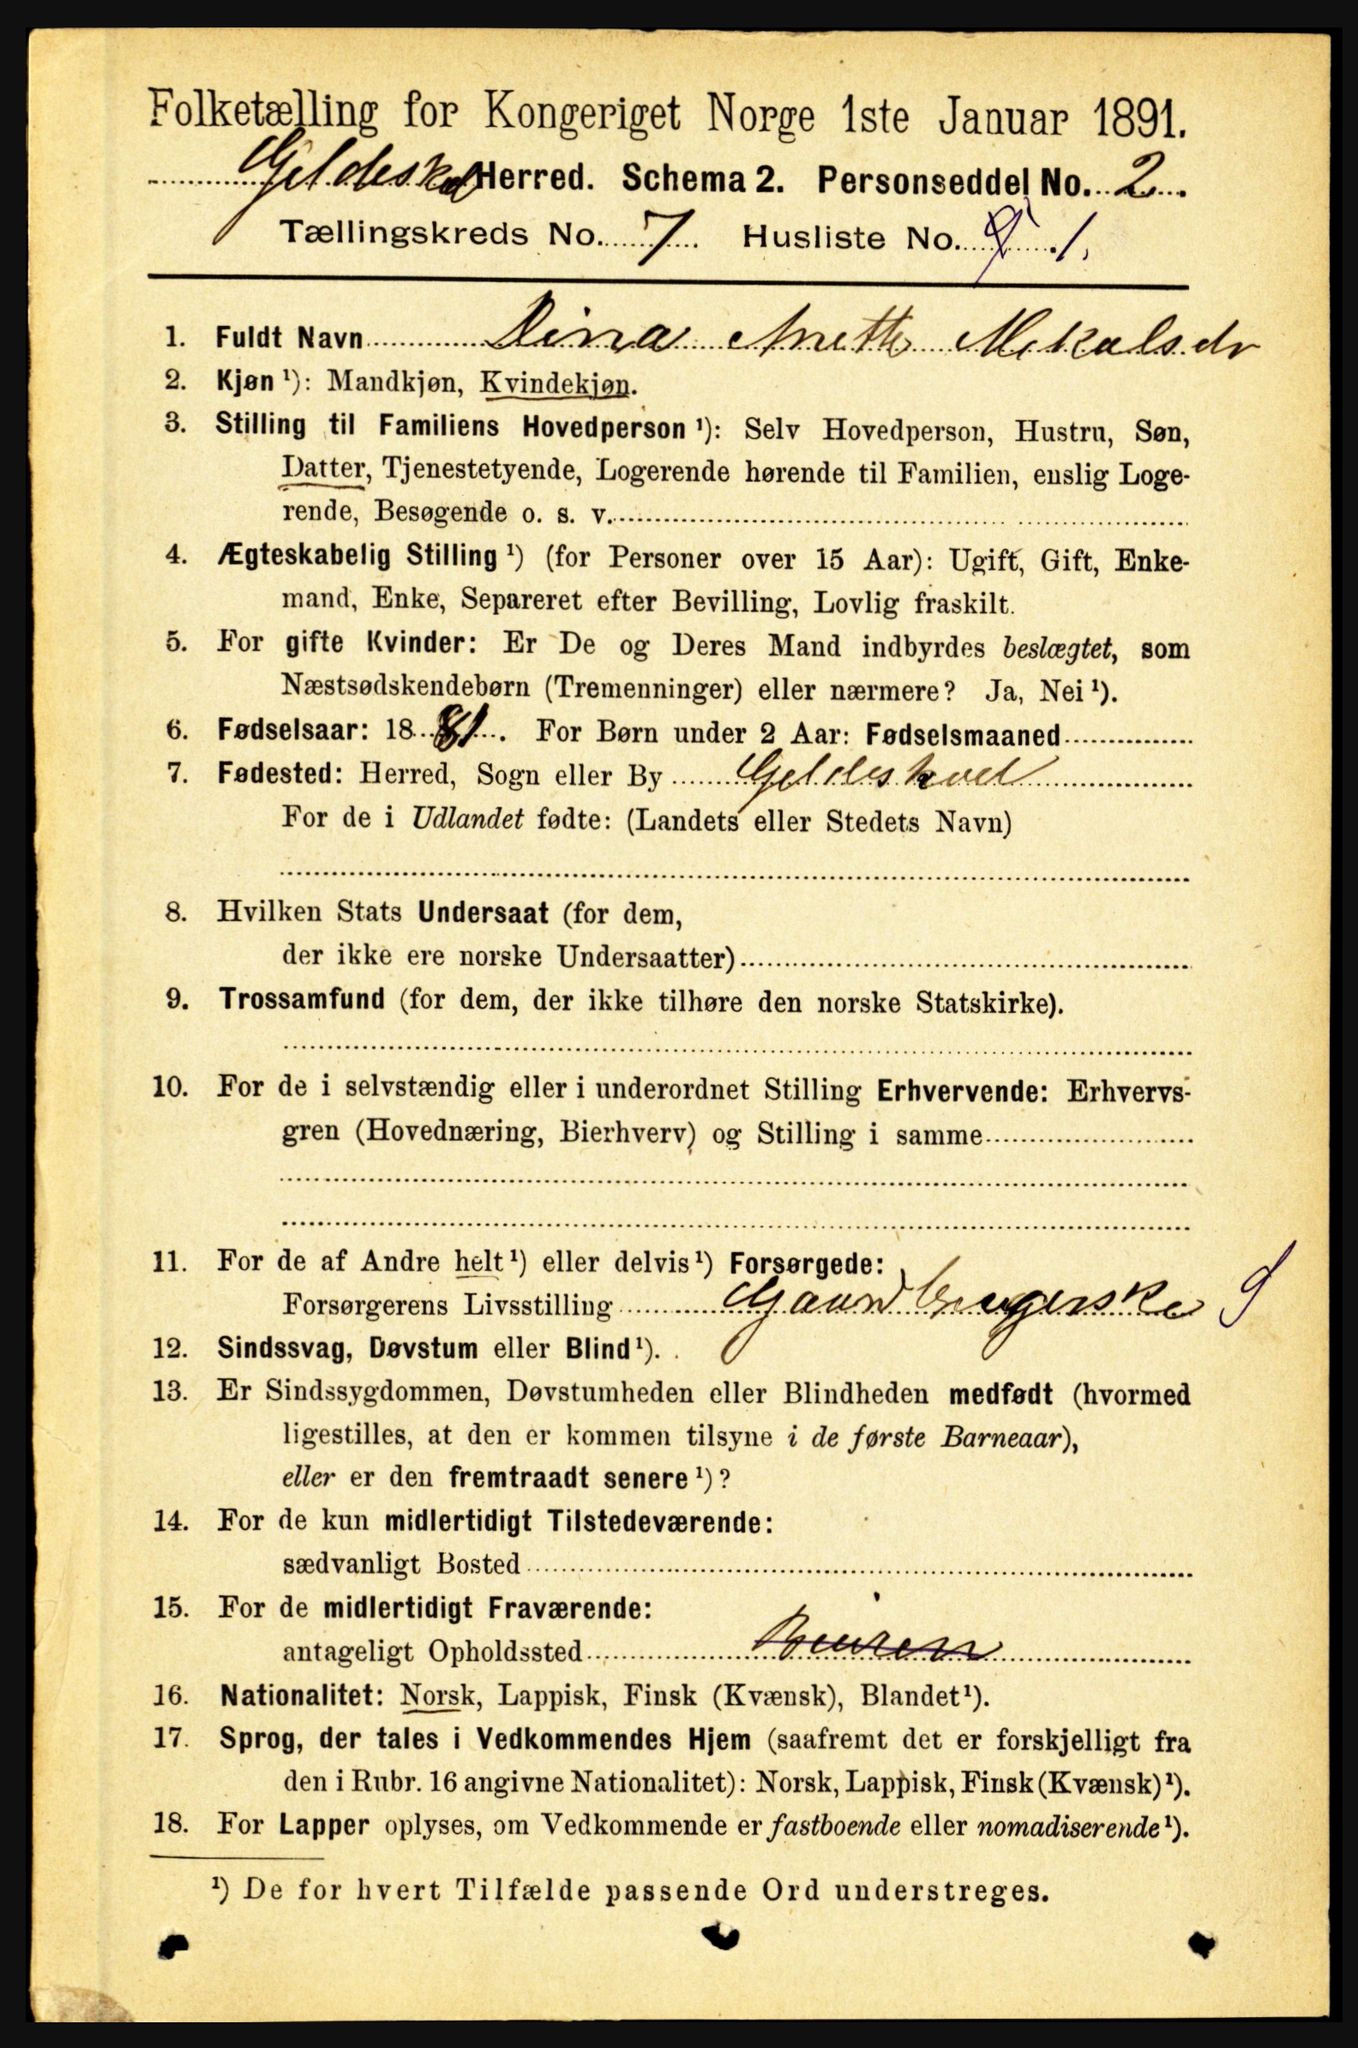 Folketælling for Kongeriget Norge 1ste Januar 1891.
Gildeskol Herred. Schema 2. Personseddel No. 2.
Tællingskreds No. 7 Husliste No. 1.
1. Fuldt Navn Dina Anette Mikalsdr
2. Kjøn ¹): Mandkjøn, Kvindekjøn.
3. Stilling til Familiens Hovedperson ¹): Selv Hovedperson, Hustru, Søn,
Datter, Tjenestetyende, Logerende hørende til Familien, enslig Loge-
rende, Besøgende o. s. v.
4. Ægteskabelig Stilling ¹) (for Personer over 15 Aar): Ugift, Gift, Enke-
mand, Enke, Separeret efter Bevilling, Lovlig fraskilt.
5. For gifte Kvinder: Er De og Deres Mand indbyrdes beslægtet, som
Næstsødskendebørn (Tremenninger) eller nærmere? Ja, Nei ¹).
6. Fødselsaar: 1881. For Børn under 2 Aar: Fødselsmaaned
7. Fødested: Herred, Sogn eller By Gildeskoel
For de i Udlandet fødte: (Landets eller Stedets Navn)
8. Hvilken Stats Undersaat (for dem,
der ikke ere norske Undersaatter)
9. Trossamfund (for dem, der ikke tilhøre den norske Statskirke).
10. For de i selvstændig eller i underordnet Stilling Erhvervende: Erhvervs-
gren (Hovednæring, Bierhverv) og Stilling i samme
11. For de af Andre helt ¹) eller delvis ¹) Forsørgede:
Forsørgerens Livsstilling
12. Sindssvag, Døvstum eller Blind ¹).
13. Er Sindssygdommen, Døvstumheden eller Blindheden medfødt (hvormed
ligestilles, at den er kommen tilsyne i de første Barneaar),
eller er den fremtraadt senere ¹)?
14. For de kun midlertidigt Tilstedeværende:
sædvanligt Bosted
15. For de midlertidigt Fraværende:
antageligt Opholdssted
16. Nationalitet: Norsk, Lappisk, Finsk (Kvænsk), Blandet ¹).
17. Sprog, der tales i Vedkommendes Hjem (saafremt det er forskjelligt fra
den i Rubr. 16 angivne Nationalitet): Norsk, Lappisk, Finsk (Kvænsk) ¹).
18. For Lapper oplyses, om Vedkommende er fastboende eller nomadiserende ¹).
¹) De for hvert Tilfælde passende Ord understreges.